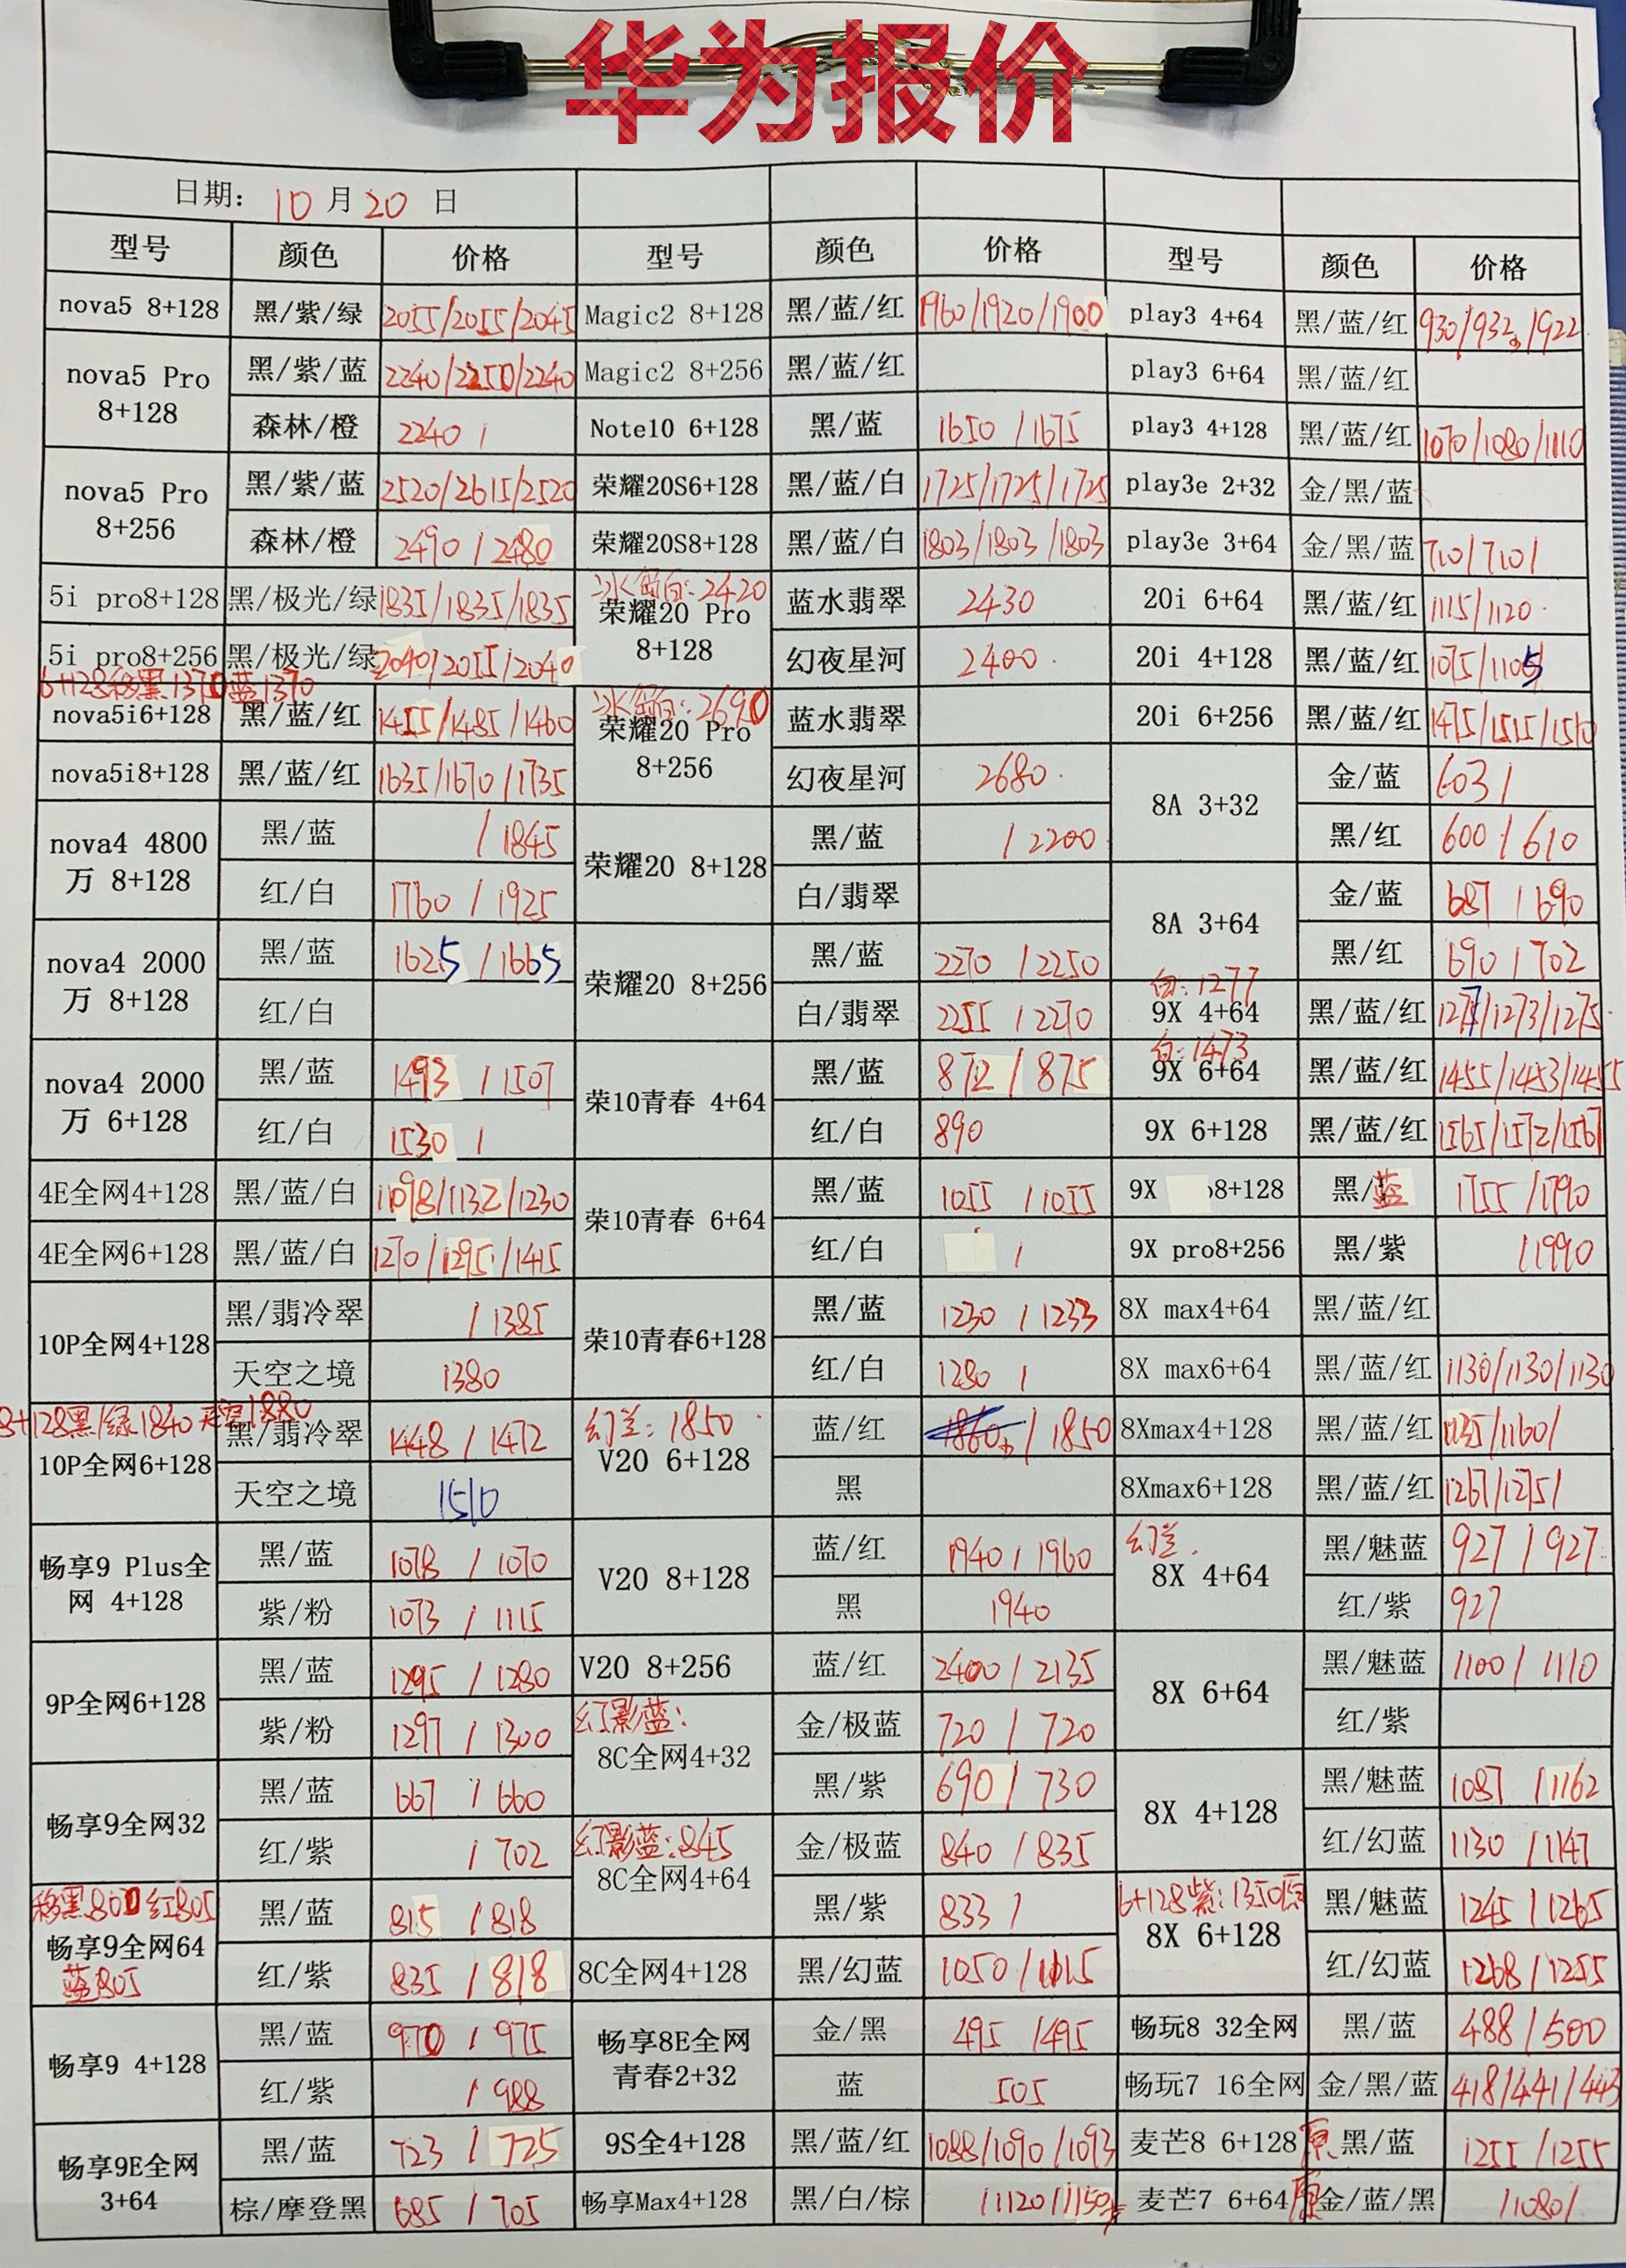 华为报价
日期: 10 月 20 日
型号 颜色 价格 型号 颜色 价格 型号 颜色 价格
nova5 8+128 黑/紫/绿 2055/2055/2045 Magic2 8+128 黑/蓝/红 1960/1920/1900 play3 4+64 黑/蓝/红 930/932/922
nova5 Pro 8+128 黑/紫/蓝 2240/2250/2240 Magic2 8+256 黑/蓝/红 play3 6+64 黑/蓝/红
森林/橙 2240/ Note10 6+128 黑/蓝 1650/1675 play3 4+128 黑/蓝/红 1070/1080/1110
nova5 Pro 8+256 黑/紫/蓝 2520/2615/2520 荣耀20S6+128 黑/蓝/白 1725/1725/1725 play3e 2+32 金/黑/蓝
森林/橙 2490/2480 荣耀20S8+128 黑/蓝/白 1803/1803/1803 play3e 3+64 金/黑/蓝 710/710/
5i pro8+128 黑/极光/绿 1835/1835/1835 冰岛白:2420 荣耀20 Pro 8+128 蓝水翡翠 2430 20i 6+64 黑/蓝/红 1115/1120
5i pro8+256 黑/极光/绿 2040/2055/2040 幻夜星河 2400 20i 4+128 黑/蓝/红 1075/1105
6+128移黑1370蓝1370
nova5i6+128 黑/蓝/红 1455/1485/1460 冰岛白:2690 荣耀20 Pro 8+256 蓝水翡翠 20i 6+256 黑/蓝/红 1475/1515/1510
nova5i8+128 黑/蓝/红 1635/1670/1735 幻夜星河 2680 8A 3+32 金/蓝 603/
nova4 4800万 8+128 黑/蓝 /1845 荣耀20 8+128 黑/蓝 /2200 黑/红 600/610
红/白 1760/1925 白/翡翠 8A 3+64 金/蓝 687/690
nova4 2000万 8+128 黑/蓝 1625/1665 荣耀20 8+256 黑/蓝 2270/2250 黑/红 690/702
红/白 白/翡翠 2255/2270 白:1277 9X 4+64 黑/蓝/红 1277/1273/1275
nova4 2000万 6+128 黑/蓝 1493/1507 荣10青春 4+64 黑/蓝 872/875 白:1473 9X 6+64 黑/蓝/红 1455/1453/1455
红/白 1530/ 红/白 890 9X 6+128 黑/蓝/红 1565/1572/1567
4E全网4+128 黑/蓝/白 1098/1132/1230 荣10青春 6+64 黑/蓝 1055/1055 9X 8+128 黑/蓝 1755/1790
4E全网6+128 黑/蓝/白 1270/1295/1415 红/白 / 9X pro8+256 黑/紫 /1990
10P全网4+128 黑/翡冷翠 /1385 荣10青春6+128 黑/蓝 1230/1233 8X max4+64 黑/蓝/红
天空之境 1380 红/白 1280/ 8X max6+64 黑/蓝/红 1130/1130/1130
8+128黑/绿1840天空1880
10P全网6+128 黑/翡冷翠 1448/1472 幻兰:1850 V20 6+128 蓝/红 /1850 8Xmax4+128 黑/蓝/红 1135/1160/
天空之境 1510 黑 8Xmax6+128 黑/蓝/红 1267/1275/
畅享9 Plus全网 4+128 黑/蓝 1078/1070 V20 8+128 蓝/红 1940/1960 幻兰 8X 4+64 黑/魅蓝 927/927
紫/粉 1073/1115 黑 1940 红/紫 927
9P全网6+128 黑/蓝 1295/1280 V20 8+256 蓝/红 2400/2135 8X 6+64 黑/魅蓝 1100/1110
紫/粉 1297/1300 幻影蓝: 8C全网4+32 金/极蓝 720/720 红/紫
畅享9全网32 黑/蓝 667/660 黑/紫 690/730 8X 4+128 黑/魅蓝 1087/1162
红/紫 /702 幻影蓝:845 8C全网4+64 金/极蓝 840/835 红/幻蓝 1130/1147
移黑800红805 畅享9全网64 蓝805 黑/蓝 815/818 黑/紫 833/ 6+128紫:1350 8X 6+128 黑/魅蓝 1245/1265
红/紫 835/818 8C全网4+128 黑/幻蓝 1050/1015 红/幻蓝 1268/1255
畅享9 4+128 黑/蓝 970/975 畅享8E全网青春2+32 金/黑 495/495 畅玩8 32全网 黑/蓝 488/500
红/紫 /988 蓝 505 畅玩7 16全网 金/黑/蓝 418/441/443
畅享9E全网 3+64 黑/蓝 723/725 9S全4+128 黑/蓝/红 1088/1090/1093 麦芒8 6+128 原 黑/蓝 1255/1255
棕/摩登黑 685/705 畅享Max4+128 黑/白/棕 /1120/1150 麦芒7 6+64 原 金/蓝/黑 /1080/